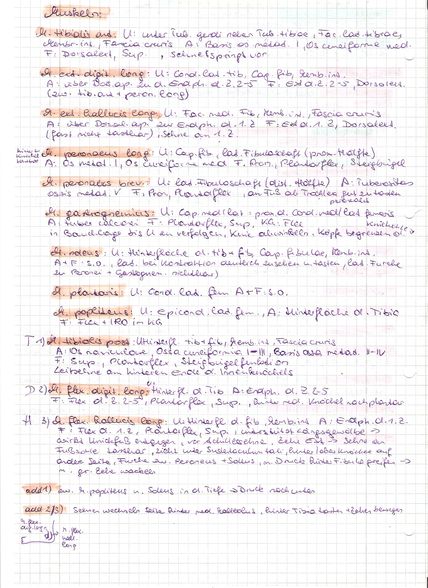 Muskeln:
M. tibialis ant: U: unter Tub. gerdi neben Tub. tibiae, Fac. lat. tibiae,
Membr. int., Fascia cruris A: Basis os metad. I, Os cuneiforme med.
F: Dorsalext, Sup., Sehne springt vor
M. ext. digit. long: U: Cond. lat. tib, Cap. fib, Memb. int.
A: über Dorsap. zu d. Endph. d. Z. 2-5 F: Ext d. Z. 2-5, Dorsalext.
(zw. tib. ant + peron. long)
M. ext. hallucis long: U: Fac. med. Fib, Memb. int, Fascia cruris
A: über Dorsalap. zu Endph. d. 1. Z F: Ext d. 1. Z, Dorsalext,
(fast nicht tastbar), Sehne an 1. Z.
M. peronaeus long: U: Cap. fib, lat. Fibulaschaft (prox. Hälfte)
A: Os metad. I, Os cuneiforme med. F: Pron, Plantarflex, Steigbügel
M. peronaeus brev: U: lat. Fibulaschaft (dist. Hälfte) A: Tuberositas
ossis metad. V F: Pron, Plantarflex, am Fuß
M. gastrognemius: U: Cap. med/lat: prox. d. Cond. med/lat femoris
A: tuber calcanei F: Plantarflex, Sup, KG: Flex
bis U zu verfolgen, Knie
M. soleus: U: Hinterfläche d. tib + fib, Cap. fibulae, Memb. int.
A + F: s.o., lat. bei Kontraktion deutlich zu sehen u. tasten, lat. Furche
zu Peronei + Gastrognem. sichtbar)
M. plantaris U: Cond. lat. fem A + F: s.o.
M. popliteus: U: Epicond. lat. fem., A: Hinterfläche d. Tibia
F: Flex + IRO im KG
T 1) M. tibialis post: U: Hinterfl. tib + fib, Memb. int, Fascia cruris
A: Os naviculare, Osta cuneiforme I-III, Basis ossa metad. II-IV
F: Sup, Plantarflex, Steigbügelfunktion
am hinteren Ende d. Innenknöchels
D 2) M. flex. digit. long: U: Hinterfl. d. Tib A: Endph. d. Z. 2-5
F: Flex d. Z. 2-5, Plantarflex, Sup., hinter med. Knöchel nach plantar
H 3) M. flex hallucis long: U: Hinterfl. d. fib, Memb. int A: Endph. d. 1. Z.
F: Flex d. 1. Z, Plantarflex, Sup, unterstützt Längsgewölbe →
wirkt Knickfuß entgegen, Sehne an
Fußsohle tastbar, zieht unter Sustentaculum tali,
andere Seite, Furche zw. Peroneus + Soleus, →
gr. Zehe wackeln
add 1) zw. M. popliteus u. Soleus in d. Tiefe → Druck nach unten
add 2/3) Sehnen wechseln Seite hinter med. Malleolus, hinter Tibia tasten + Zehen bewegen
M. flex.
dig. long
M. flex.
hall.
long